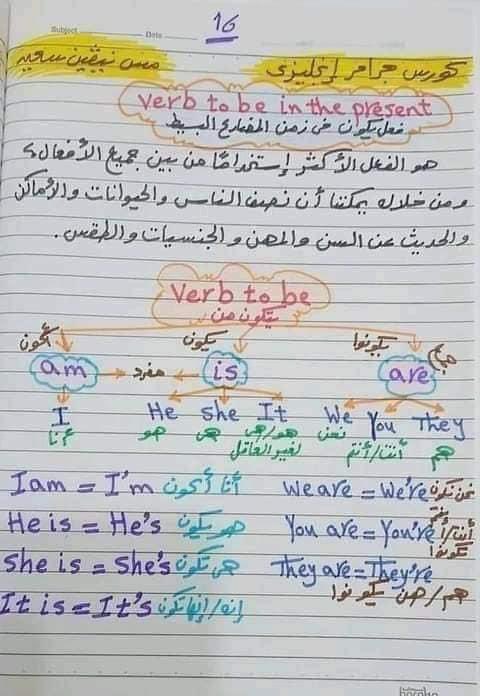 Subject
Date
16
كورس جرامر إنجليزى
مس نيڤين سعيد
verb to be in the present
فعل يكون فى زمن المضارع البسيط
هو الفعل الأكثر إستخدامًا من بين جميع الأفعال؟
ومن خلاله يمكننا أن نصف الناس والحيوانات والأماكن
والحديث عن السن والمهن والجنسيات والطقس.
verb to be
يتكون من
أكون يكون يكونوا
am مفرد is are جمع
I He She It We You They
أنا هو هى هو/هى نحن أنت/أنتم هم
لغير العاقل
I am = I'm أنا أكون
We are = We're نحن نكون
He is = He's هو يكون
You are = You're أنت/أنتم
تكونوا
She is = She's هى تكون
They are = They're
هم/هن يكونوا
It is = It's إنه/إنها تكون